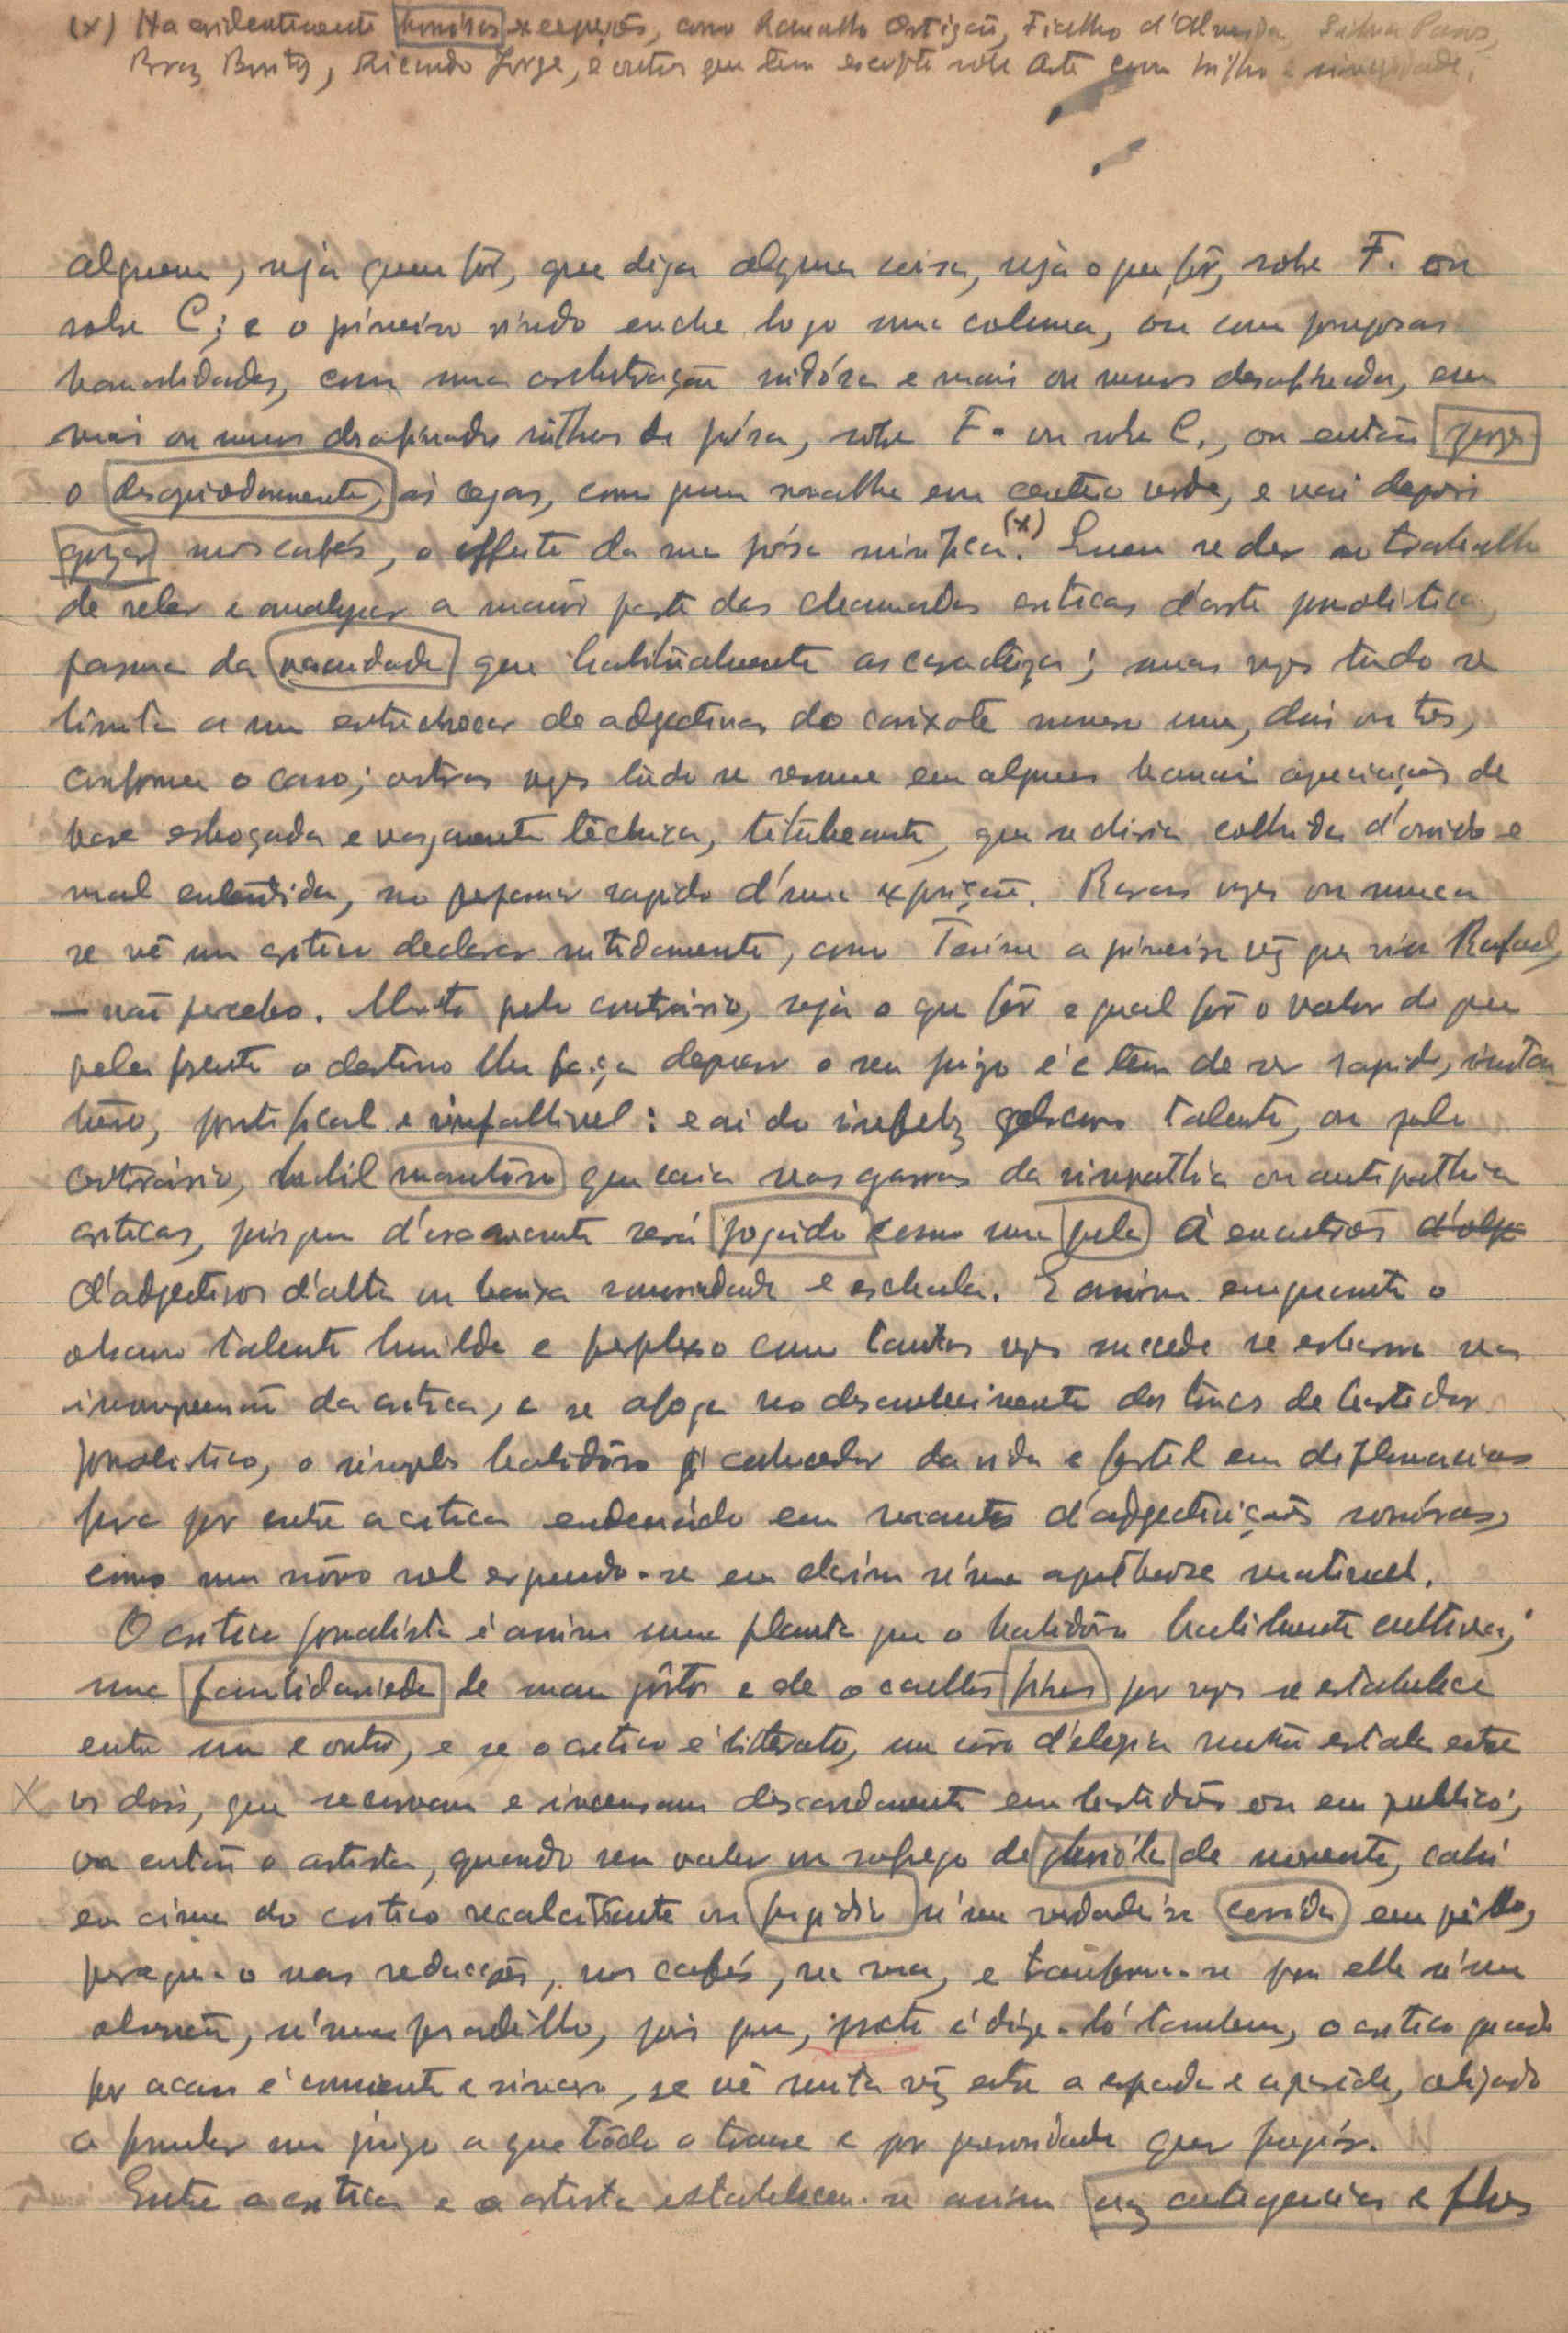 (x) Ha evidentemente honrosas excepções, como Ramalho Ortigão, Fialho d'Almeida, Silva Pinto,
Braz Burity, Ricardo Jorge, e outros que tem escripto sobre Arte com brilho e sinceridade.
alguem, seja quem fôr, que diga alguma coisa, seja o que fôr, sobre F. ou
sobre C; e o primeiro vindo enche logo uma columna, ou com pomposas
banalidades, com uma orchestração ruidósa e mais ou menos desafinada, em
mais ou menos desafinados rithmos de prósa, sobre F. ou sobre C., ou então
o desapiedadamente, ás cegas, como quem em verde, e vai depois
gozar nos cafés, o effeito da sua prósa mirifica.(x) Quem se der ao trabalho
de reler e analysar a maior parte das chamadas criticas d'arte jornalistica
pasma da vacuidade que habitualmente as caracteriza; umas vezes tudo se
limita a um entrechocar de adjectivos do caixote numero um, dois ou tres,
conforme o caso; outras vezes tudo se resume em algumas banais apreciações de
base esboçada e vagamente téchnica, titubeante, que se diria colhida d'ouvido e
mal entendida, no perpassar rapido d'uma exposição. Raras vezes ou nunca
se vê um critico declarar nitidamente, como Taine a primeira vez que viu Rafael,
— não percebo. Muito pelo contrário, seja o que fôr e qual fôr o valor do que
pela frente o destino lhe faça deparar o seu juizo é e tem de ser rapido, instan-
tâneo, pontifical e infallivel: e ai do infeliz obscuro talento, ou pelo
contrário, habil que caia nas garras da simpathia ou antipathia
criticas, pois que d'esse momento será jogado como uma péla á encontrões d'alg
d'adjectivos d'alta ou baixa sonoridade e eschala. E assim emquanto o
obscuro talento humilde e perplexo como tantas vezes succede se esbarra na
incompreensão da critica, e se afoga no desconhecimento dos trucs de bastidor
jornalistico, o simples habilidôso já conhecedor da vida e fertil em diplomacias
fura por entre a critica endeusádo em d'adjectivações sonóras,
como um nôvo sol erguendo-se em clarim n'uma apotheose matinal.
O critico jornalista é assim uma planta que o habilidôso habilmente cultiva;
uma familiariedade de mau gôsto e de occultos fins por vezes se estabelece
entre um e outro, e se o critico é litterato, um côro d'elogio mutuo estala entre
os dois, que se curvam e incensam descaradamente em bastidôr ou em publico;
ou então o artista, quando sem valor de momento, cahi
em cima do critico recalcitrante ou fugidio n'uma verdadeira corrida em pêllo,
persegue-o nas redacções, nos cafés, na rua, e transforma-se para elle n'um
abantesma, n'um pesadêllo, pois que, justo é dize-ló tambem, o critico quando
por acaso é consciente e sincero, se vê muita vez entre a espada e a parede, obrigado
a formular um juizo a que tôdo o transe e por generosidade quer fugir.
Entre a critica e o artista estabelecem-se assim